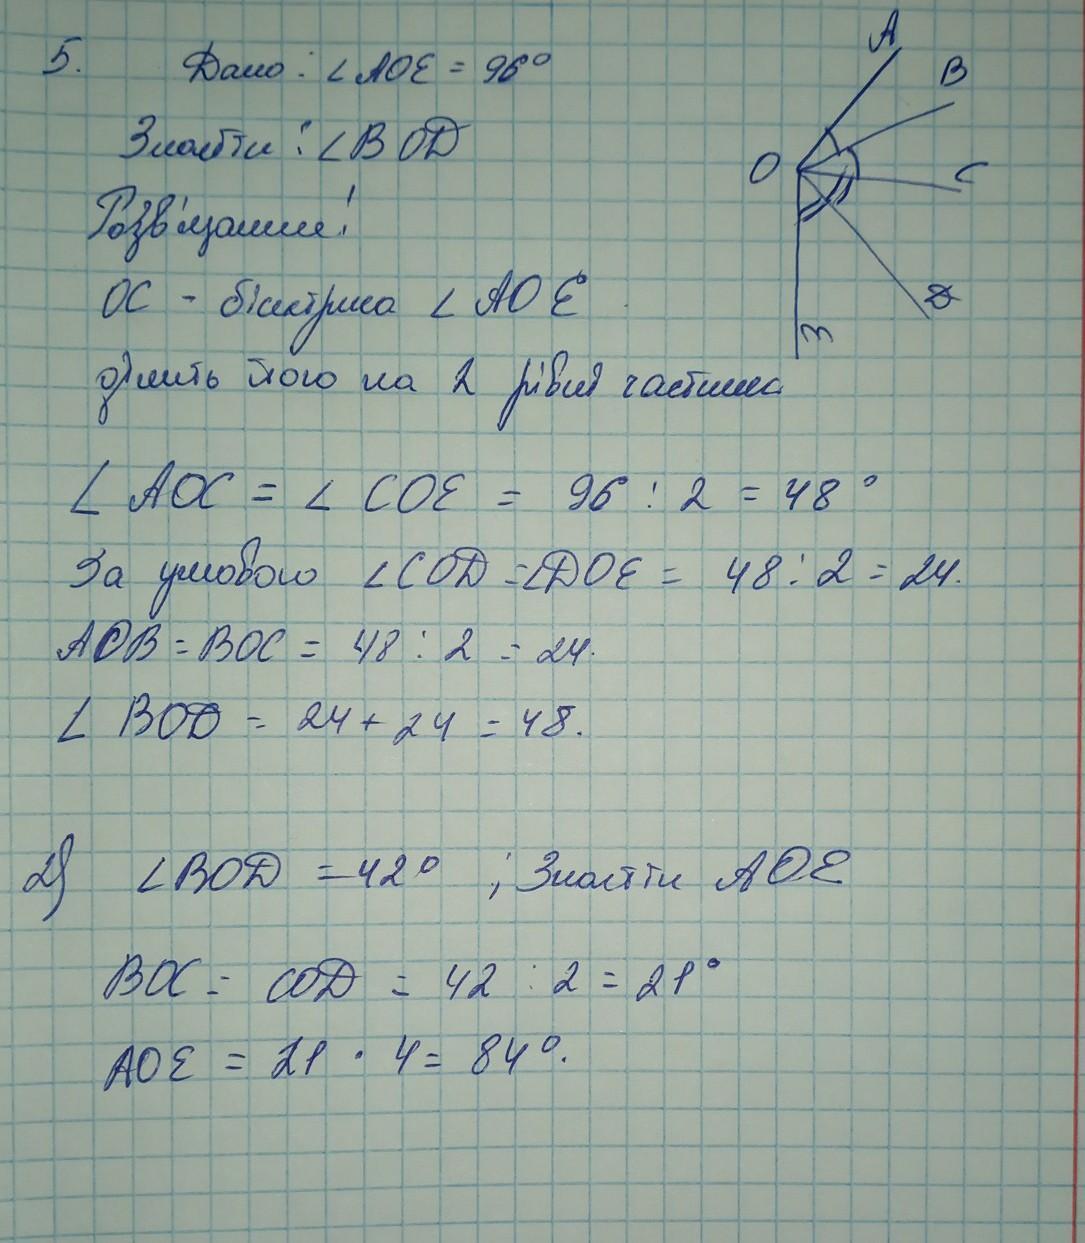 5. Дано: ∠AOE = 96°
Знайти: ∠BOD
Розв'язання:
OC - бісектриса ∠AOE
ділить його на 2 рівні частини
∠AOC = ∠COE = 96 : 2 = 48°
За умовою ∠COD = ∠DOE = 48 : 2 = 24.
AOB = BOC = 48 : 2 = 24.
∠BOD = 24 + 24 = 48.
2) ∠BOD = 42° ; Знайти AOE
BOC = COD = 42 : 2 = 21°
AOE = 21 · 4 = 84°.
A
B
O
C
D
E